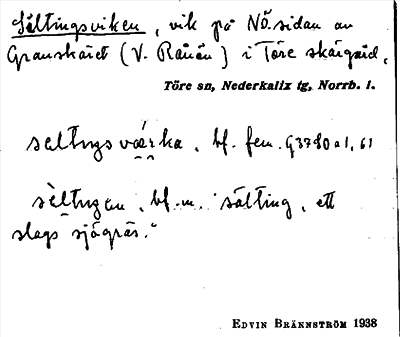 Sältingsviken, vik på NÖ.sidan av
Granskäret (V. Rånön) i Töre skärgård.
Töre sn, Nederkalix tg, Norrb. l.
sęltıŋsværka, bf. fem. G3780 a 1, 61
sèltıŋen, bf. m. "sälting, ett
slags sjögräs."
EDVIN BRÄNNSTRÖM 1938